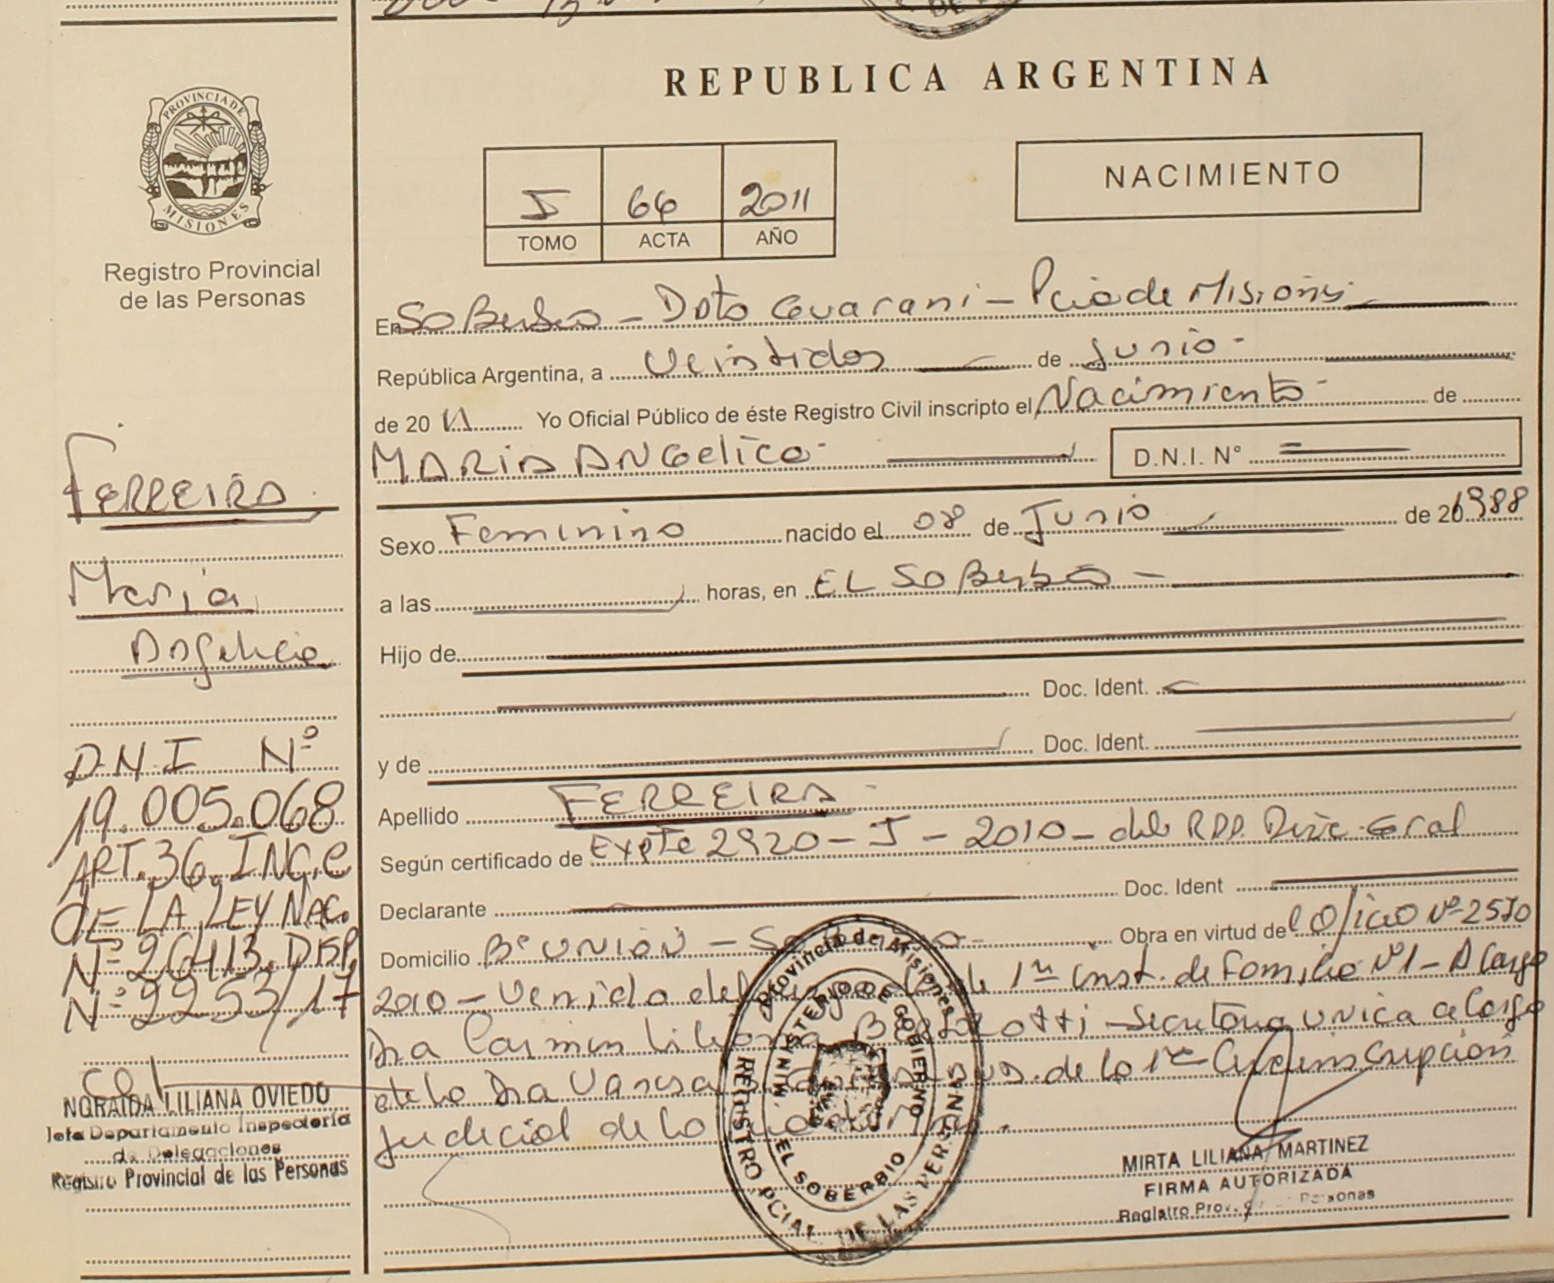 REPUBLICA ARGENTINA
PROVINCIA DE
MISIONES
Registro Provincial
de las Personas
I 66 2011
TOMO ACTA AÑO
NACIMIENTO
En Soberbio - Dpto Guarani - Pcia de Misiones
República Argentina, a Veintidos de Junio
de 20 11 Yo Oficial Público de éste Registro Civil inscripto el Nacimiento de
MARIA ANGelica D.N.I. N°
Sexo Feminino nacido el 08 de Junio de 20 1988
a las horas, en EL Soberbio
Hijo de
Doc. Ident.
y de Doc. Ident.
Apellido FERREIRA
Según certificado de Expte 2920 - J - 2010 - del RPP Gral
Declarante Doc. Ident
Domicilio B° UNIÓN Obra en virtud del Oficio N° 2570
2010 - Venido del de 1ra inst. de Familia N°1 - A Cargo
Dra Carmen Liliana - Secretaria unica a Cargo
de la Dra Vanesa de la 1ra Circunscripción
Judicial de la
FERREIRA
Maria
Angelica
D.N.I N°
19.005.068
ART.36.INC.C
DE LA LEY NAC.
N° 26413. DISP.
N° 2253/17
NORAIDA LILIANA OVIEDO
Jefa Departamento Inspectoría
de Delegaciones
Registro Provincial de las Personas
Provincia de Misiones
MINISTERIO DE GOBIERNO
REGISTRO PCIAL. DE LAS PERSONAS
EL SOBERBIO
MIRTA LILIANA MARTINEZ
FIRMA AUTORIZADA
Registro Prov. Personas